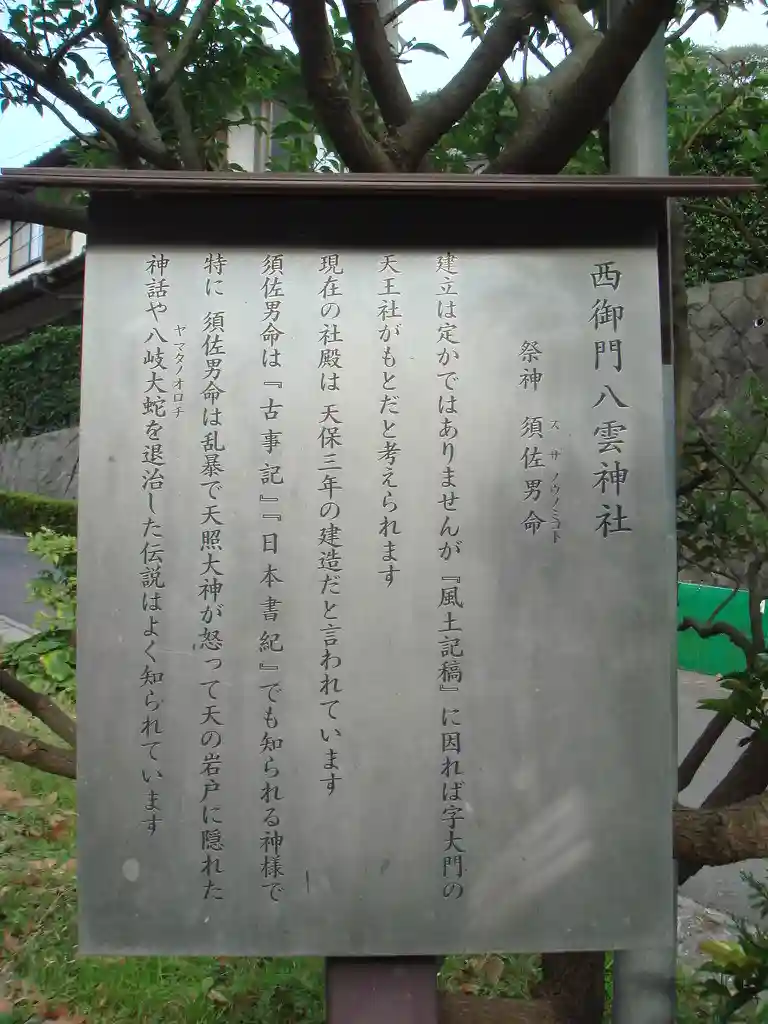 西御門八雲神社
祭神 須佐男命
スサノウノミコト
建立は定かではありませんが『風土記稿』に因れば字大門の
天王社がもとだと考えられます
現在の社殿は 天保三年の建造だと言われています
須佐男命は『古事記』『日本書紀』でも知られる神様で
特に 須佐男命は乱暴で天照大神が怒って天の岩戸に隠れた
神話や八岐大蛇を退治した伝説はよく知られています
ヤマタノオロチ